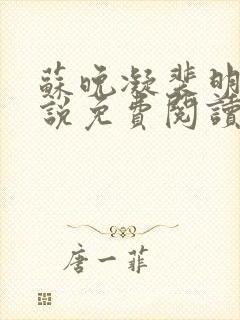 蘇晚凝裴明
說免費閱讀
唐一菲